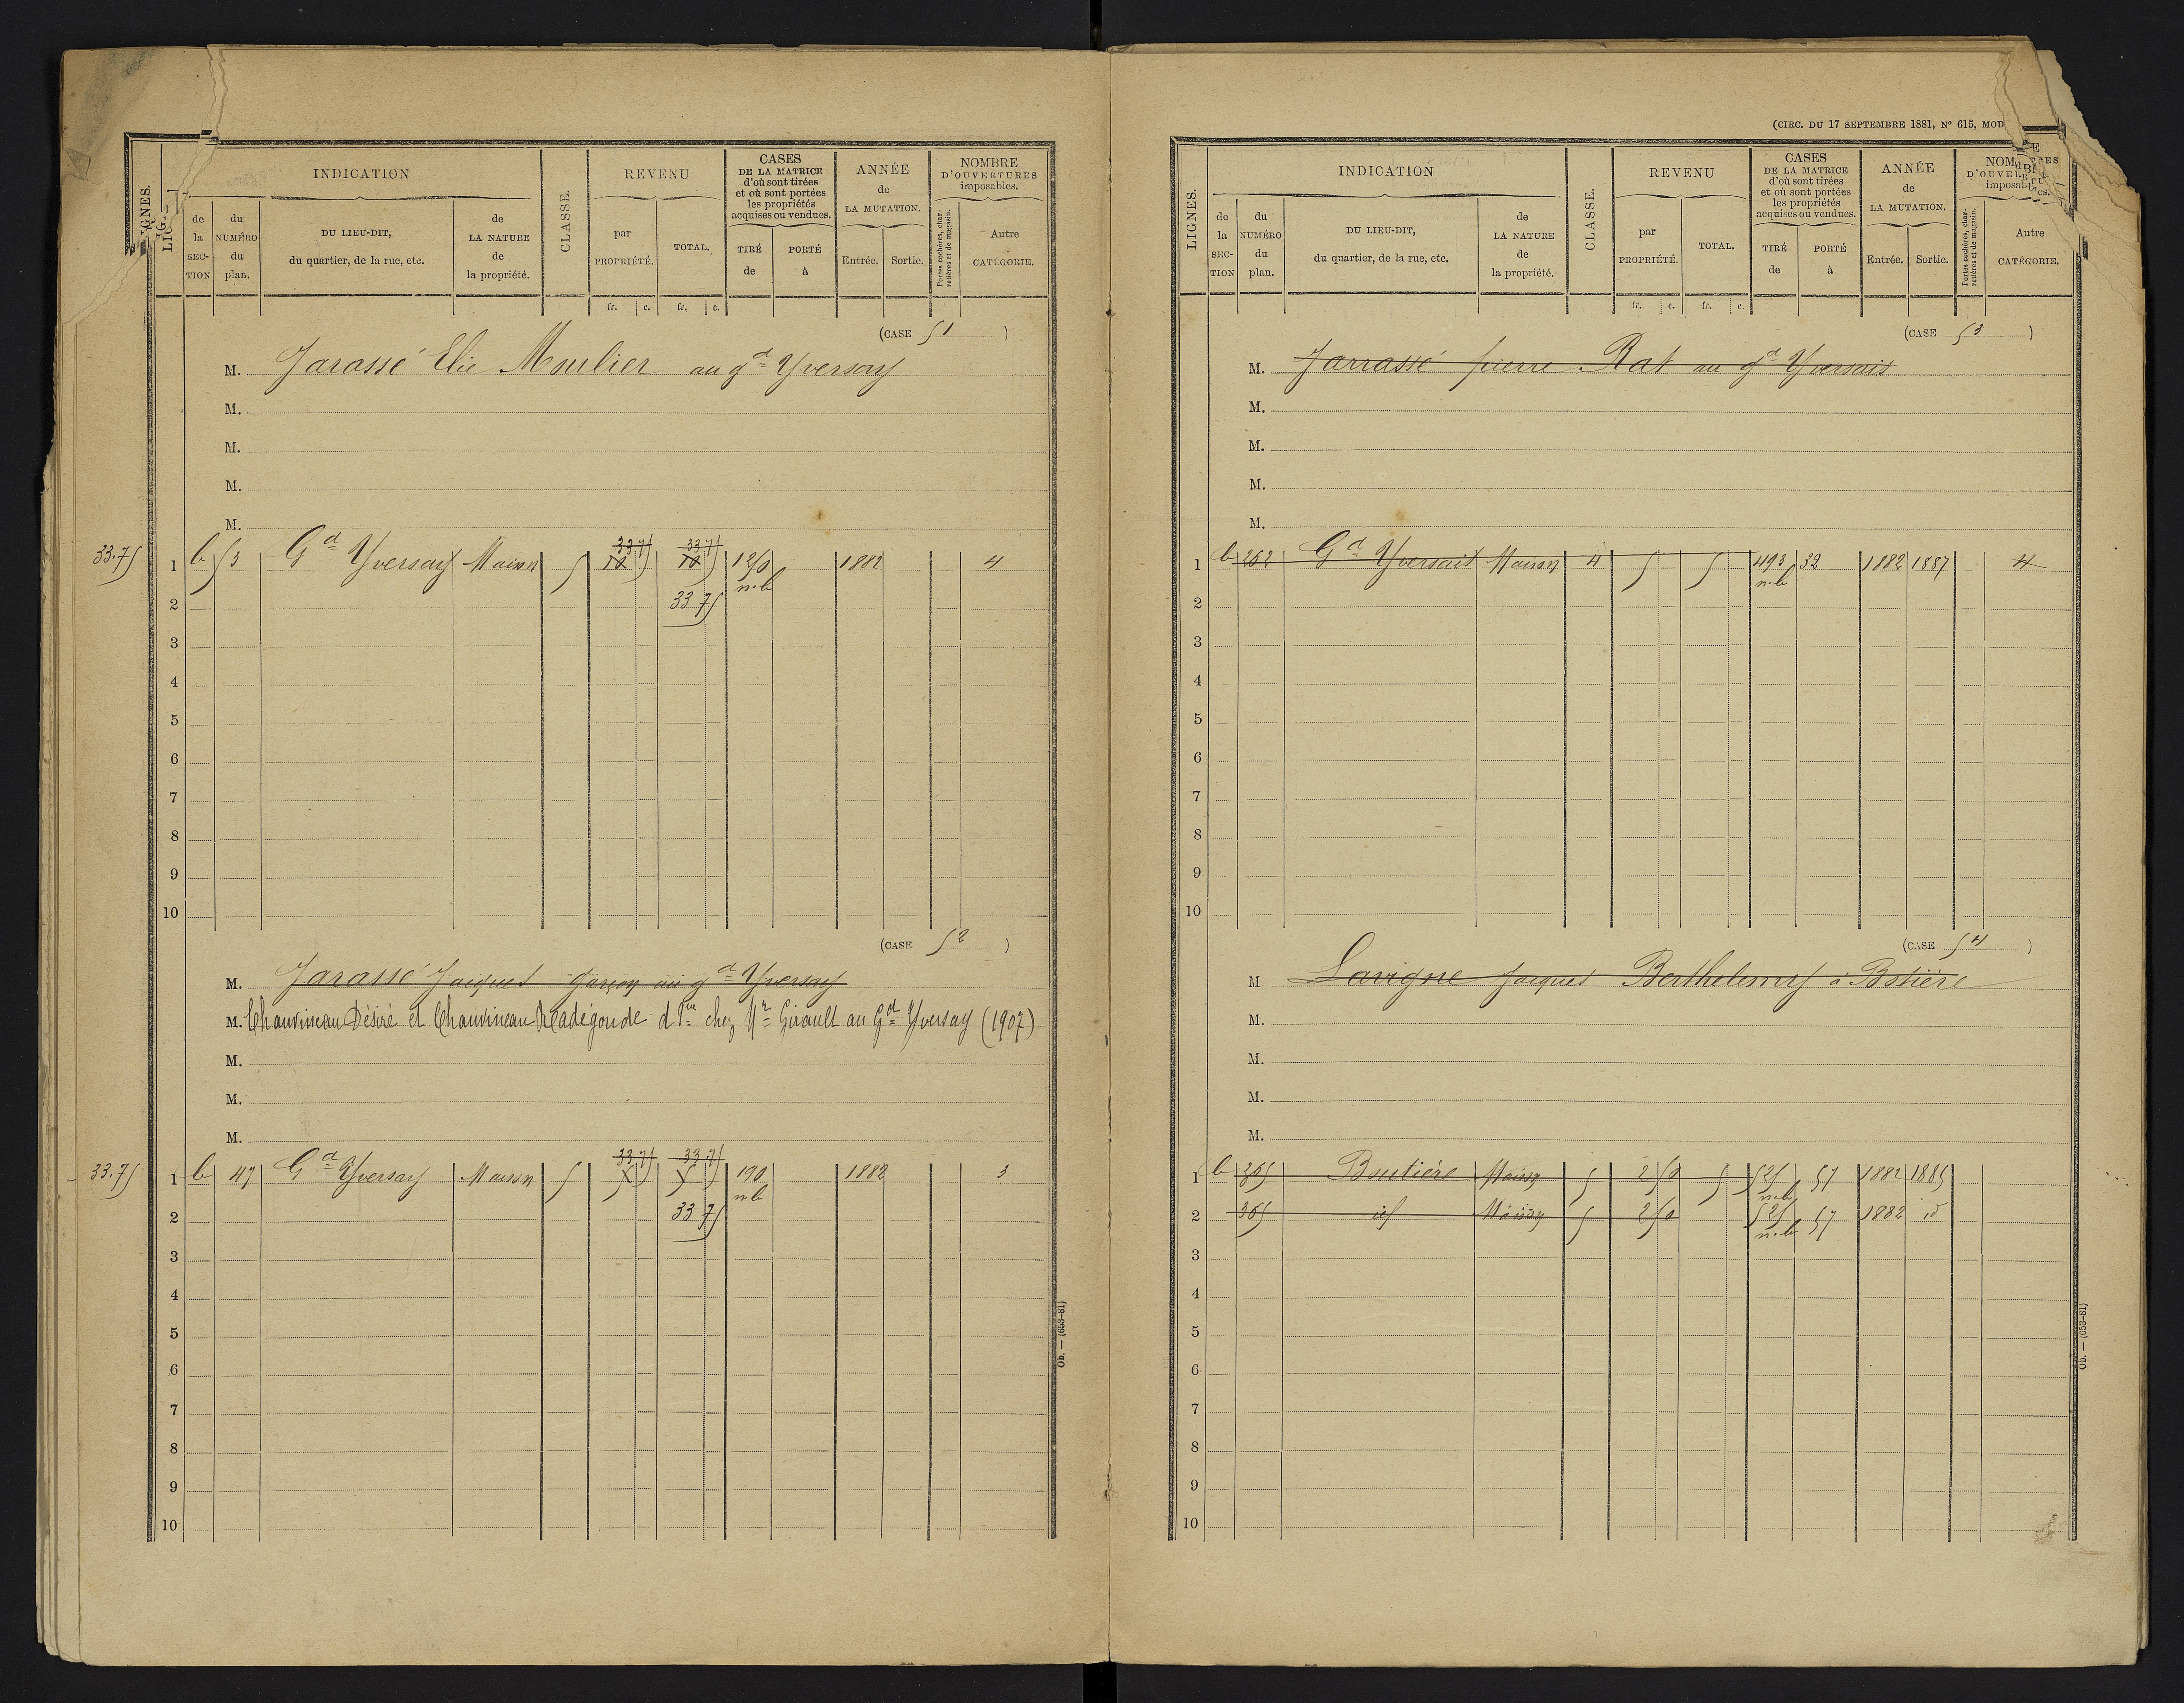 LIGNES.
INDICATION
de la SECTION
du NUMÉRO du plan.
DU LIEU-DIT, du quartier, de la rue, etc.
de LA NATURE de la propriété.
CLASSE.
REVENU
par PROPRIÉTÉ.
TOTAL.
fr. c. fr. c.
CASES DE LA MATRICE d'où sont tirées et où sont portées les propriétés acquises ou vendues.
TIRÉ de
PORTÉ à
ANNÉE de LA MUTATION.
Entrée. Sortie.
NOMBRE D'OUVERTURES imposables.
Portes cochères, charretières et de magasin.
Autre CATÉGORIE.
(CASE 51 )
M. Jarassé Elie Moulier au gd Yversay
M.
M.
M.
M.
33.75
33.75 33.75
1 b 53 Gd Yversay Maison 5 120 1882 4
n.b
2 33 75
3
4
5
6
7
8
9
10
(CASE 52 )
M. Jarassé Jacques garçon au gd Yversay
M. Chauvineau Désiré et Chauvineau Radégonde dtrs chez Mr Girault au Gd Yversay (1907)
M.
M.
M.
33.75
33.75 33.75
1 b 47 Gd Yversay Maison 5 5 5 190 1882 3
n.b
2 33 75
3
4
5
6
7
8
9
10
Ob. — (653-81)
(CIRC. DU 17 SEPTEMBRE 1881, N° 615, MOD
LIGNES.
INDICATION
de la SECTION
du NUMÉRO du plan.
DU LIEU-DIT, du quartier, de la rue, etc.
de LA NATURE de la propriété.
CLASSE.
REVENU
par PROPRIÉTÉ.
TOTAL.
fr. c. fr. c.
CASES DE LA MATRICE d'où sont tirées et où sont portées les propriétés acquises ou vendues.
TIRÉ de
PORTÉ à
ANNÉE de LA MUTATION.
Entrée. Sortie.
Portes cochères, charretières et de magasin.
Autre CATÉGORIE.
(CASE 53 )
M. Jarrassé pierre Rat au gd Yversais
M.
M.
M.
M.
1 b 262 Gd Yversait Maison 4 5 5 493 32 1882 1887 4
n.b
2
3
4
5
6
7
8
9
10
(CASE 54 )
M Lavigne Jacques Berthelemy à Botière
M.
M.
M.
M.
1 b 365 Boutière Maison 5 2 50 5 525 57 1882 1885
n.b
2 365 id Maison 5 2 50 525 57 1882 id
n.b
3
4
5
6
7
8
9
10
Ob. — (653-81)